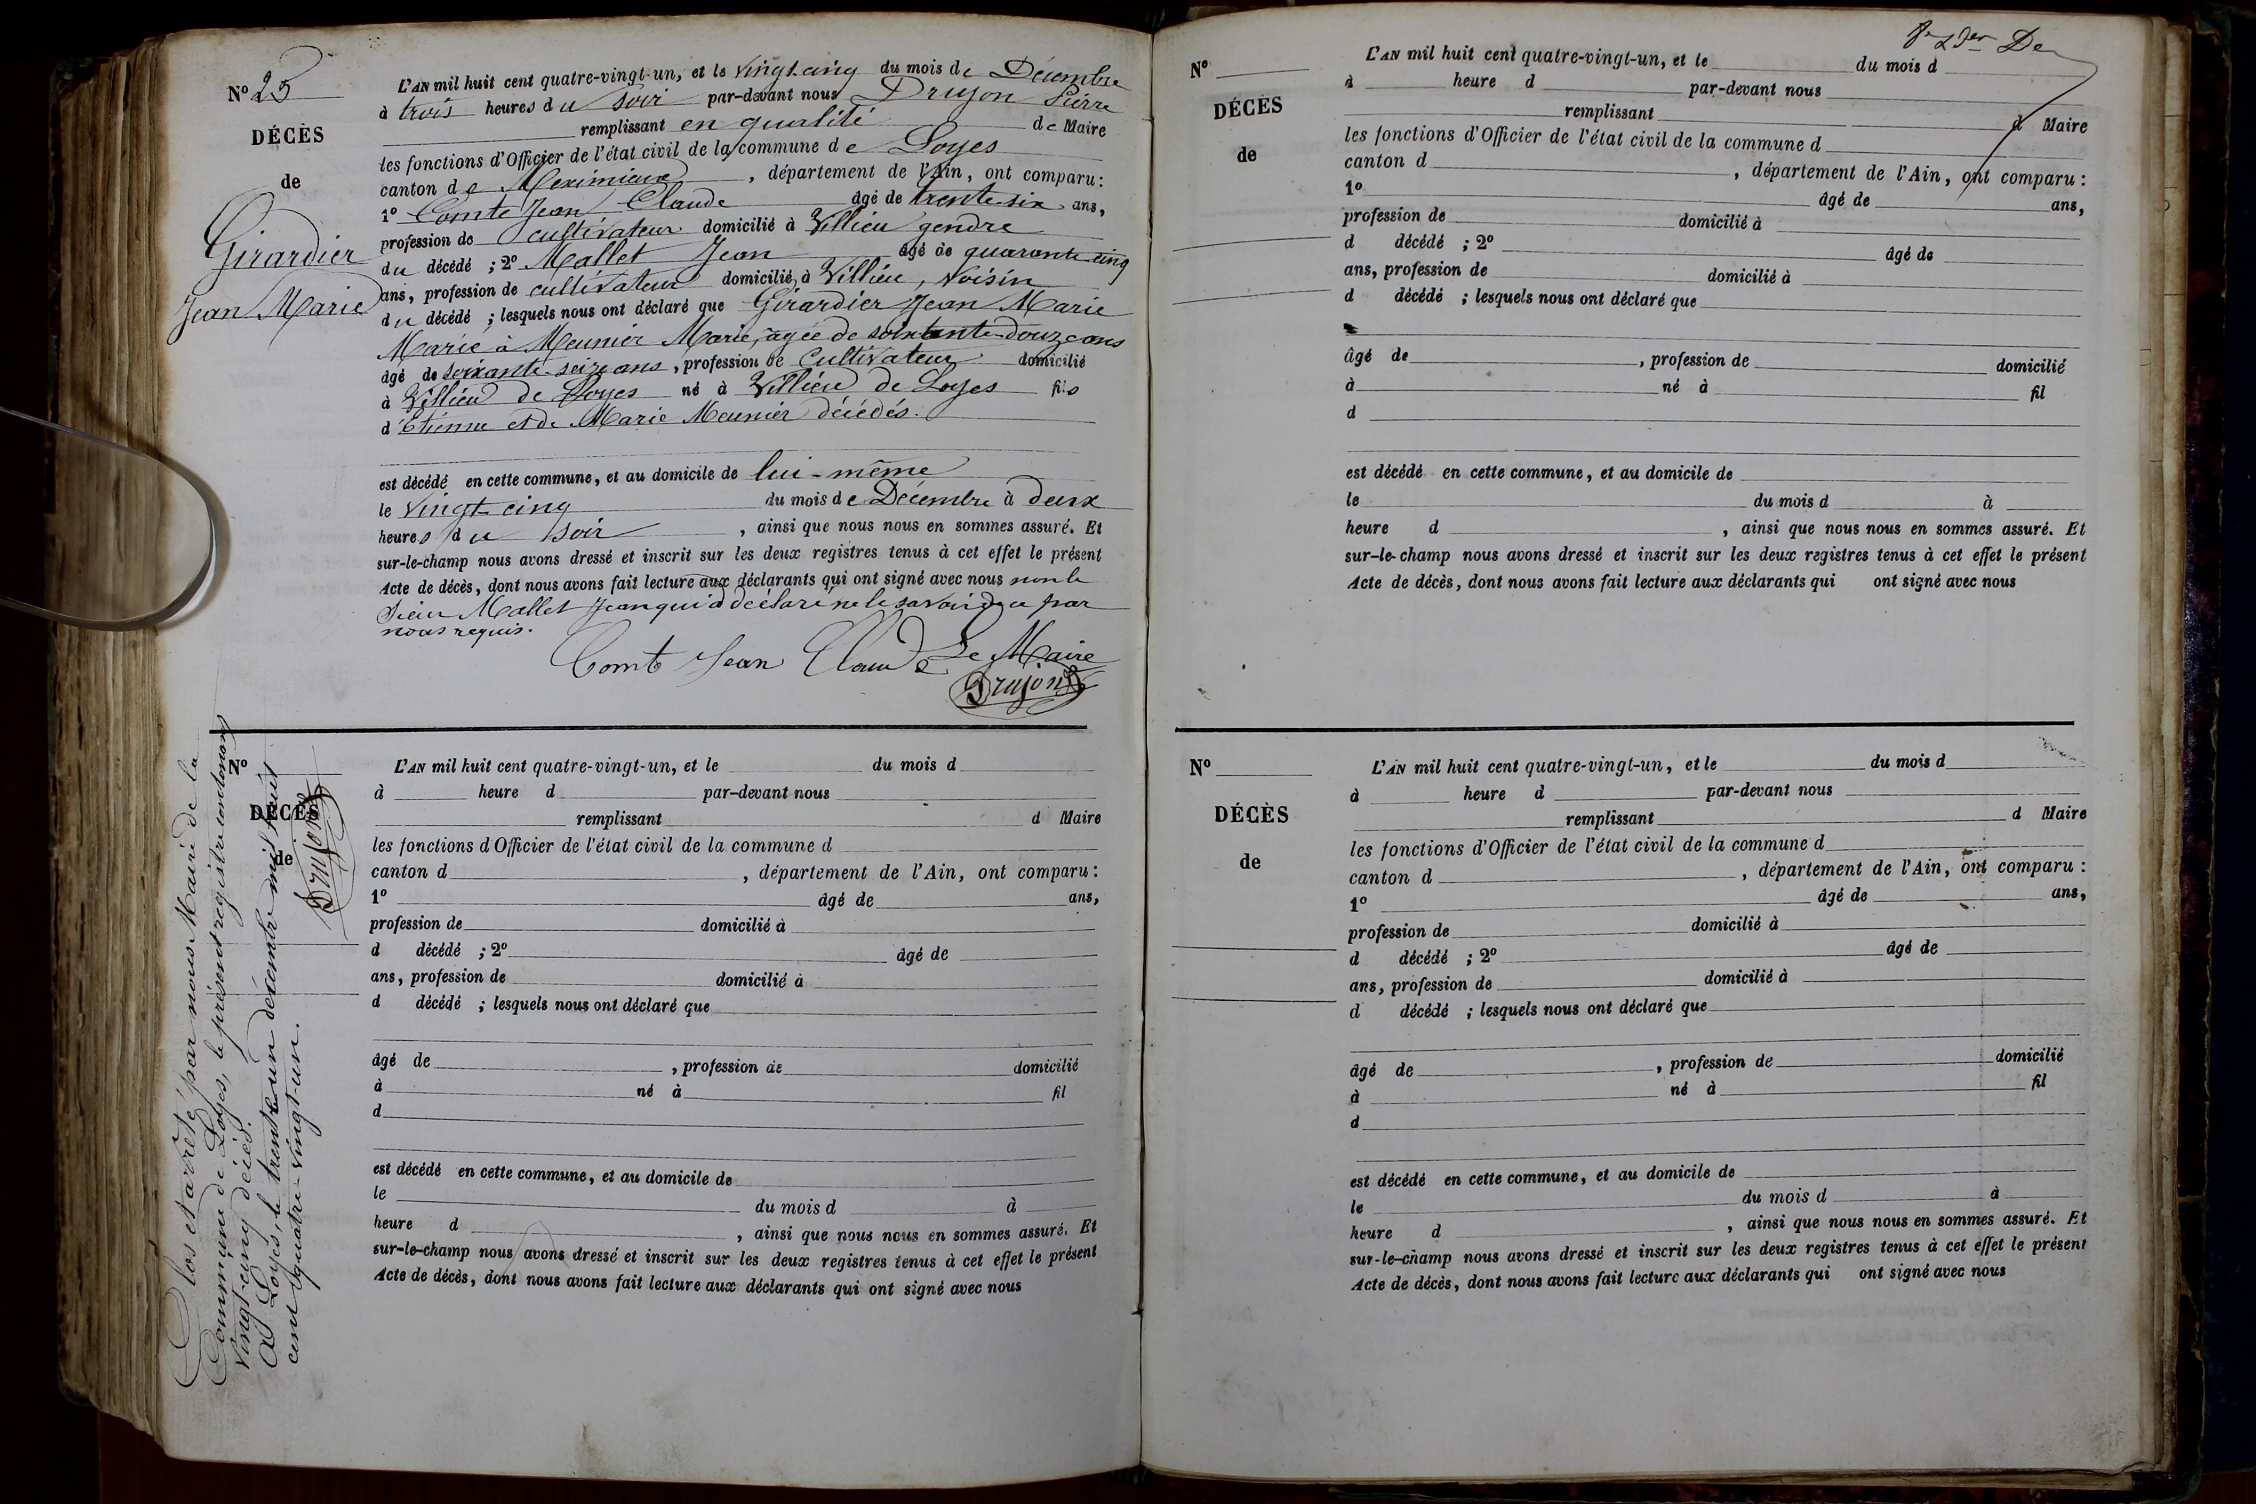 Nº 25
DÉCÈS
de
Girardier
Jean Marie
L'AN mil huit cent quatre-vingt-un, et le vingt cinq du mois de Décembre
à trois heures du soir par-devant nous Drujon Pierre
remplissant en qualité de Maire
les fonctions d'Officier de l'état civil de la commune de Loyes
canton de Meximieux, département de l'Ain, ont comparu:
1º Comte Jean Claude âgé de trente six ans,
profession de cultivateur domicilié à Villieu gendre
du décédé ; 2º Mallet Jean âgé de quarante cinq
ans, profession de cultivateur domicilié à Villieu, voisin
du décédé ; lesquels nous ont déclaré que Girardier Jean Marie
Marié à Meunier Marie, agée de soixante douze ans
âgé de soixante seize ans, profession de Cultivateur domicilié
à Villieu de Loyes né à Villieu de Loyes fils
d'Etienne et de Marie Meunier décédés.
est décédé en cette commune, et au domicile de lui-même
le vingt cinq du mois de Décembre à deux
heures du soir, ainsi que nous nous en sommes assuré. Et
sur-le-champ nous avons dressé et inscrit sur les deux registres tenus à cet effet le présent
Acte de décès, dont nous avons fait lecture aux déclarants qui ont signé avec nous non le
Sieur Mallet Jean qui a déclaré ne le savoir de ce par
nous requis.
Comte Jean Claude Le Maire
Drujon
Nº
DÉCÈS
de
Clos et arrêté par nous Maire de la
Commune de Loyes, le présent registre contenant
vingt-cinq décès.
A Loyes, le trente un décembre mil huit
cent quatre-vingt-un.
Drujon
L'AN mil huit cent quatre-vingt-un, et le du mois d
à heure d par-devant nous
remplissant d Maire
les fonctions d'Officier de l'état civil de la commune d
canton d , département de l'Ain, ont comparu:
1º âgé de ans,
profession de domicilié à
d décédé ; 2º âgé de
ans, profession de domicilié à
d décédé ; lesquels nous ont déclaré que
âgé de , profession de domicilié
à né à fil
d
est décédé en cette commune, et au domicile de
le du mois d à
heure d , ainsi que nous nous en sommes assuré. Et
sur-le-champ nous avons dressé et inscrit sur les deux registres tenus à cet effet le présent
Acte de décès, dont nous avons fait lecture aux déclarants qui ont signé avec nous
Nº
DÉCÈS
de
L'AN mil huit cent quatre-vingt-un, et le du mois d
à heure d par-devant nous
remplissant d Maire
les fonctions d'Officier de l'état civil de la commune d
canton d , département de l'Ain, ont comparu :
1º âgé de ans,
profession de domicilié à
d décédé ; 2º âgé de
ans, profession de domicilié à
d décédé ; lesquels nous ont déclaré que
âgé de , profession de domicilié
à né à fil
d
est décédé en cette commune, et au domicile de
le du mois d à
heure d , ainsi que nous nous en sommes assuré. Et
sur-le-champ nous avons dressé et inscrit sur les deux registres tenus à cet effet le présent
Acte de décès, dont nous avons fait lecture aux déclarants qui ont signé avec nous
Nº
DÉCÈS
de
L'AN mil huit cent quatre-vingt-un, et le du mois d
à heure d par-devant nous
remplissant d Maire
les fonctions d'Officier de l'état civil de la commune d
canton d , département de l'Ain, ont comparu :
1º âgé de ans,
profession de domicilié à
d décédé ; 2º âgé de
ans, profession de domicilié à
d décédé ; lesquels nous ont déclaré que
âgé de , profession de domicilié
à né à fil
d
est décédé en cette commune, et au domicile de
le du mois d à
heure d , ainsi que nous nous en sommes assuré. Et
sur-le-champ nous avons dressé et inscrit sur les deux registres tenus à cet effet le présent
Acte de décès, dont nous avons fait lecture aux déclarants qui ont signé avec nous